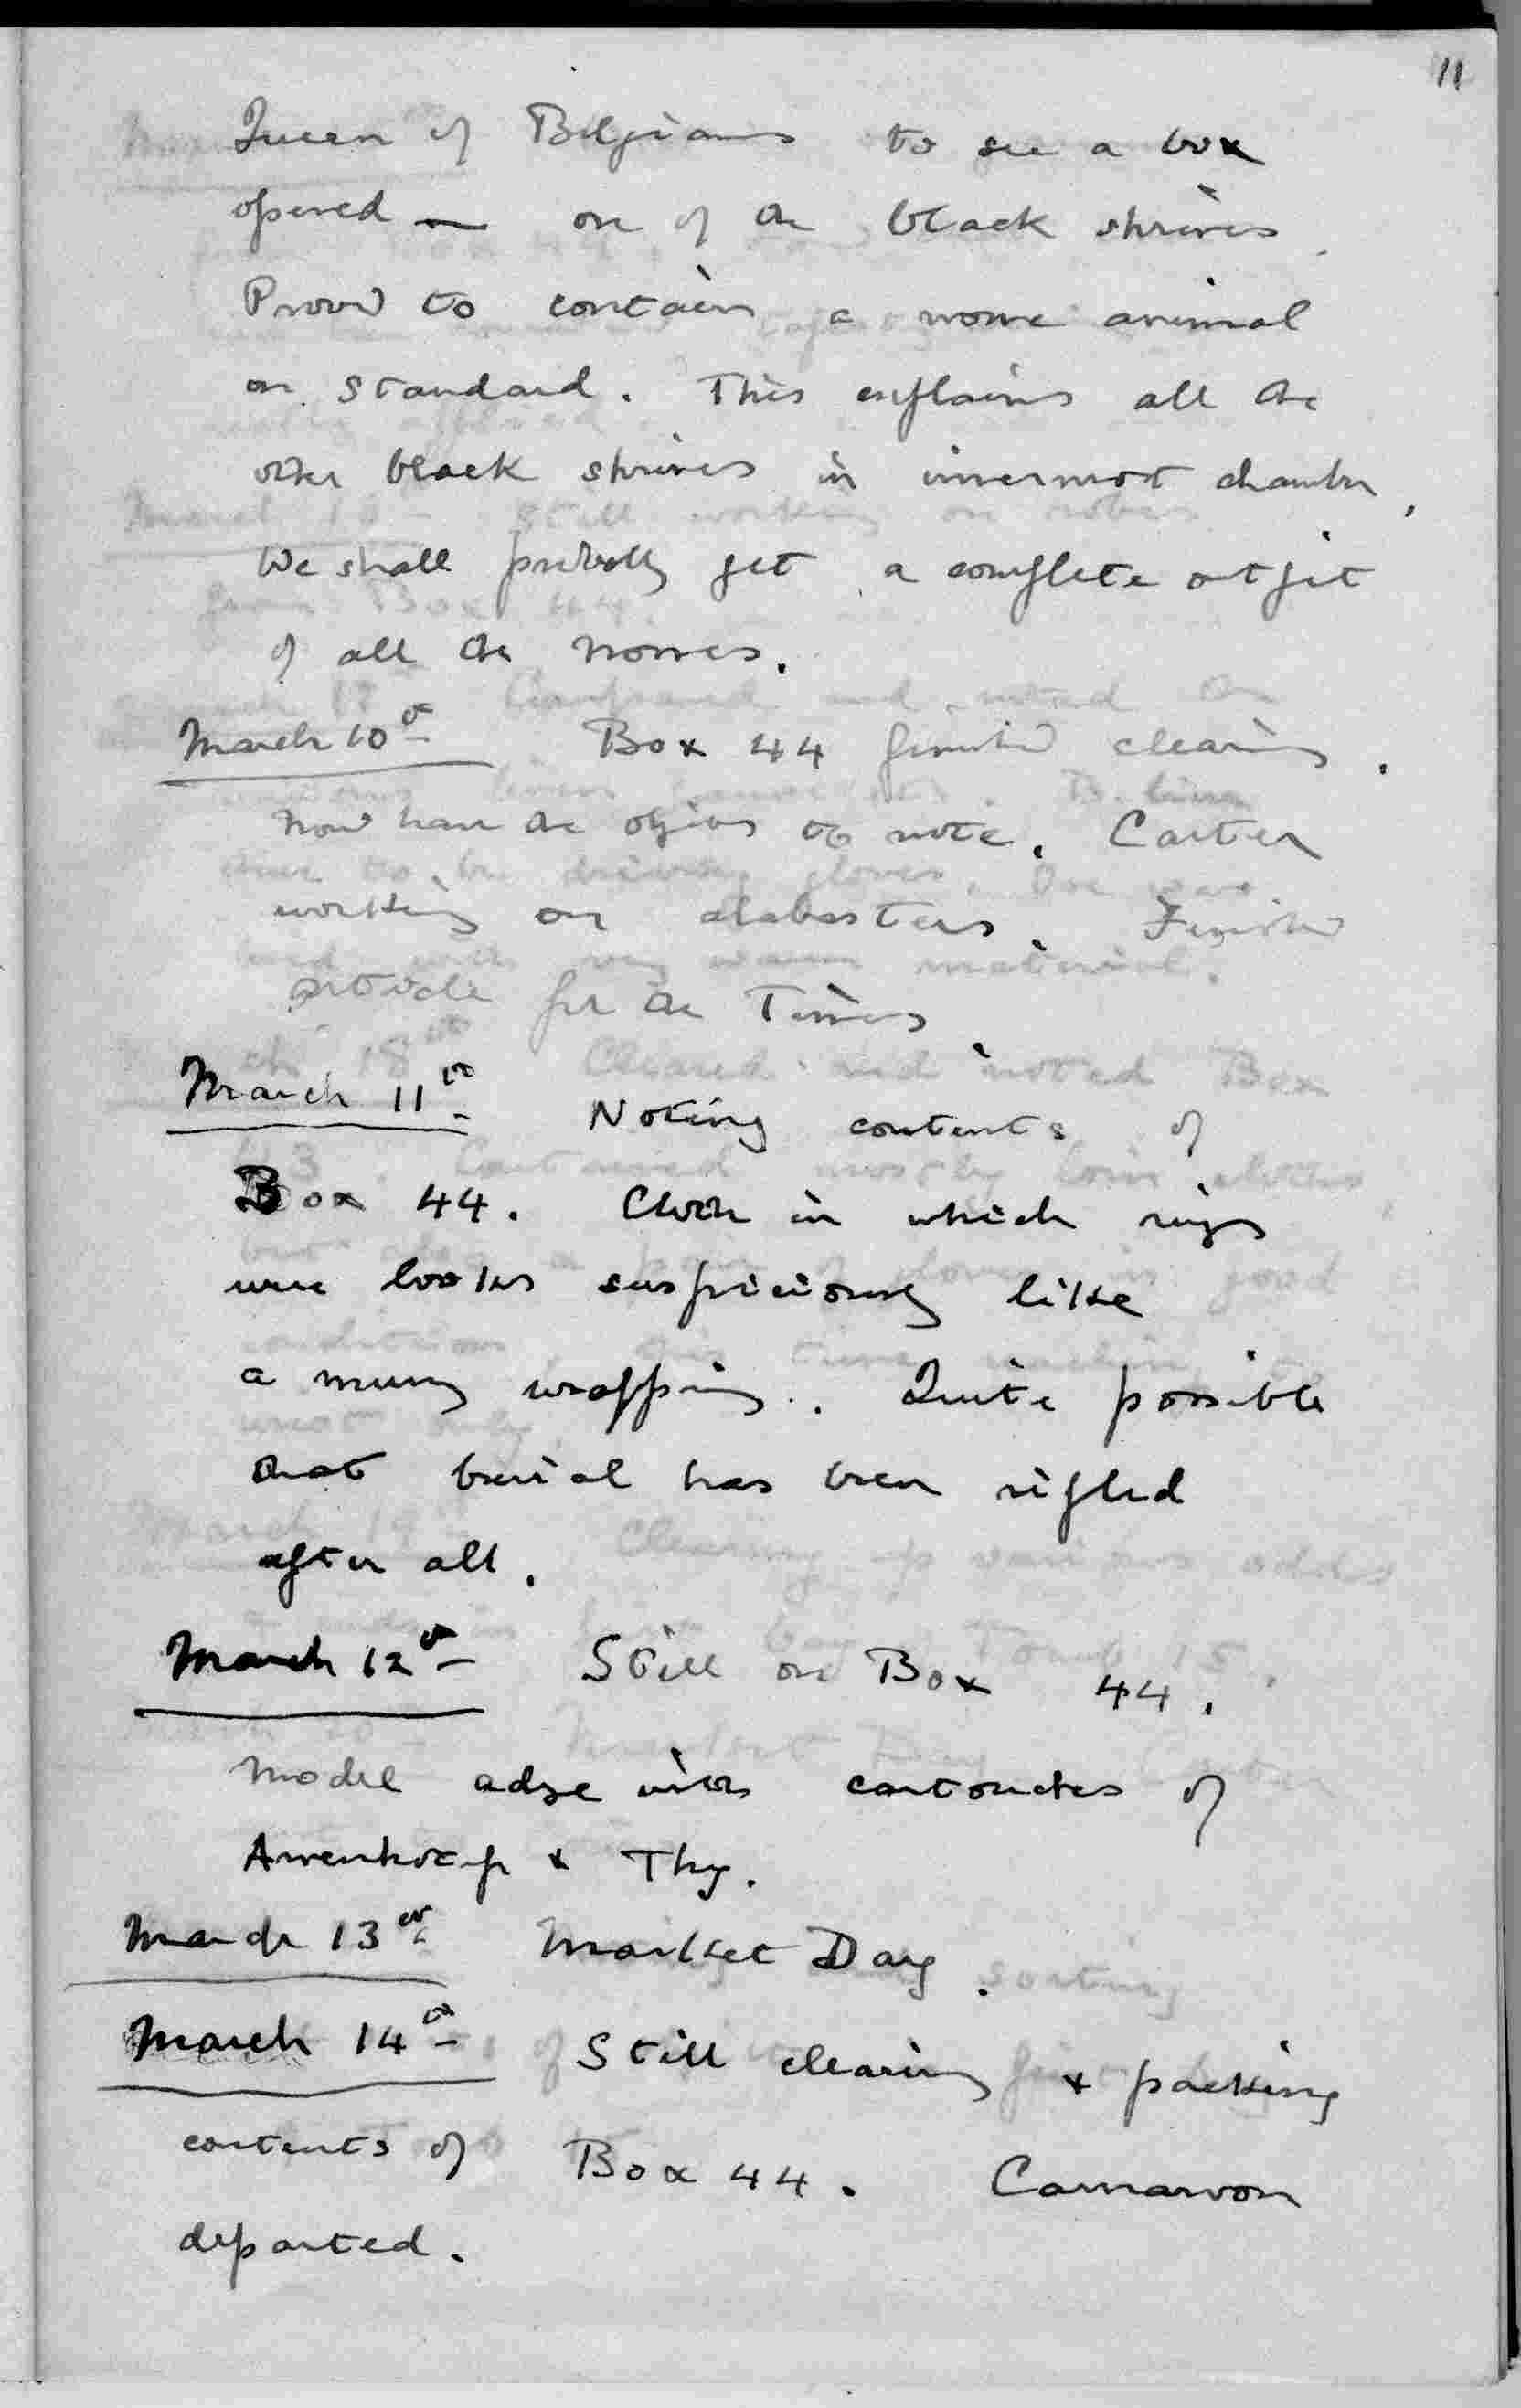 11
Queen of Belgians to see a box
opened — one of the black shrines.
Proved to contain a nome animal
on standard. This explains all the
other black shrines in innermost chamber,
We shall probably get a complete outfit
of all the nomes.
March 10th Box 44 finished clearing.
Now have the objects to note. Carter
working on alabasters. Finished
article for the Times.
March 11th Noting contents of
Box 44. Cloth in which rings
were looks suspiciously like
a mummy wrapping. Quite possible
that burial has been rifled
after all.
March 12th Still on Box 44.
Model adze with cartouches of
Amenhotep & Thy.
March 13th Market Day.
March 14th Still clearing & packing
contents of Box 44. Carnarvon
departed.